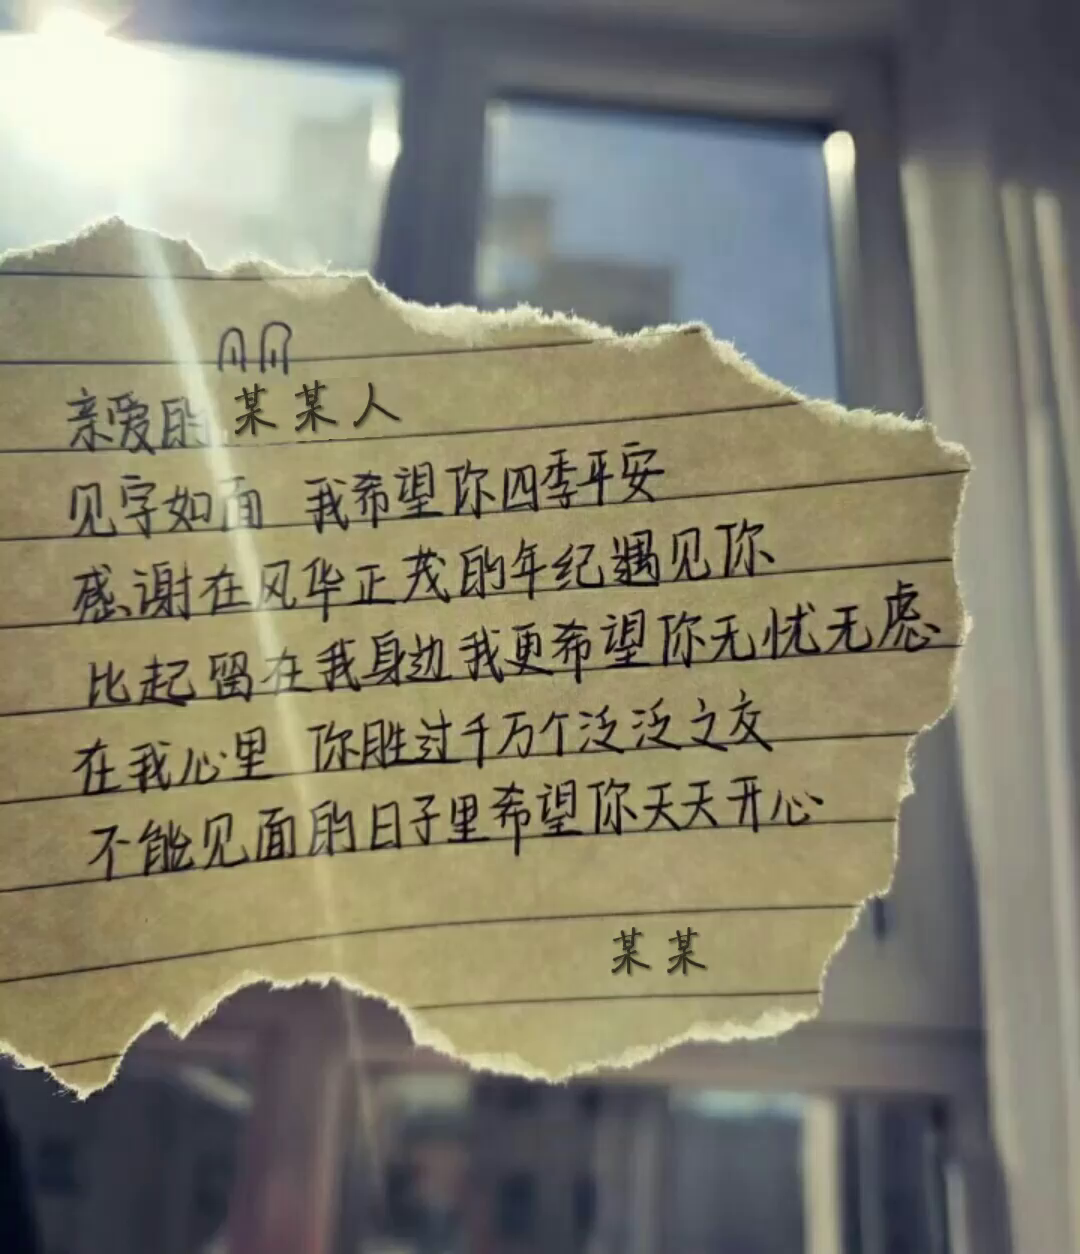 亲爱的某某人
见字如面 我希望你四季平安
感谢在风华正茂的年纪遇见你
比起留在我身边我更希望你无忧无虑
在我心里 你胜过千万个泛泛之交
不能见面的日子里希望你天天开心
某某